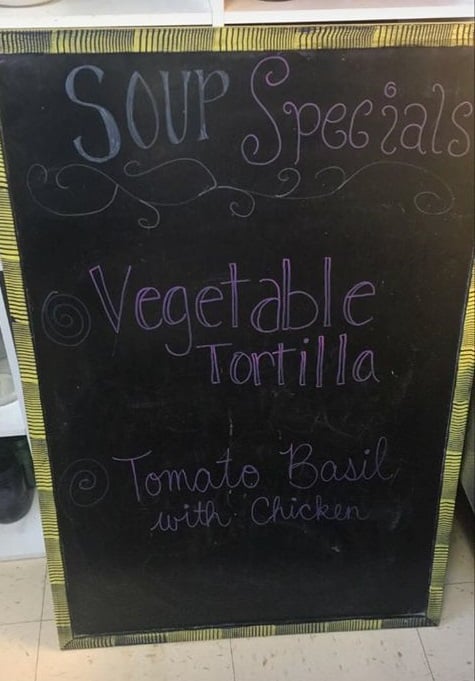 Soup Specials
Vegetable
Tortilla
Tomato Basil
with Chicken